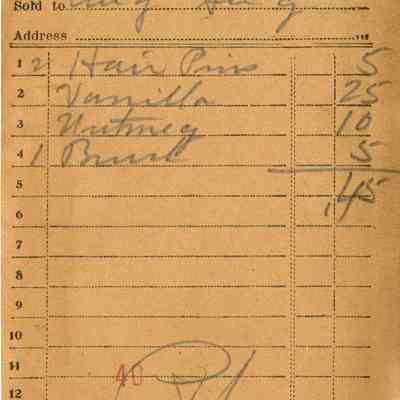 Sold to
Address
1 2 Hair Pins 5
2 Vanilla 25
3 Nutmeg 10
4 1 5
5 .45
6
7
8
9
10
11 40
12